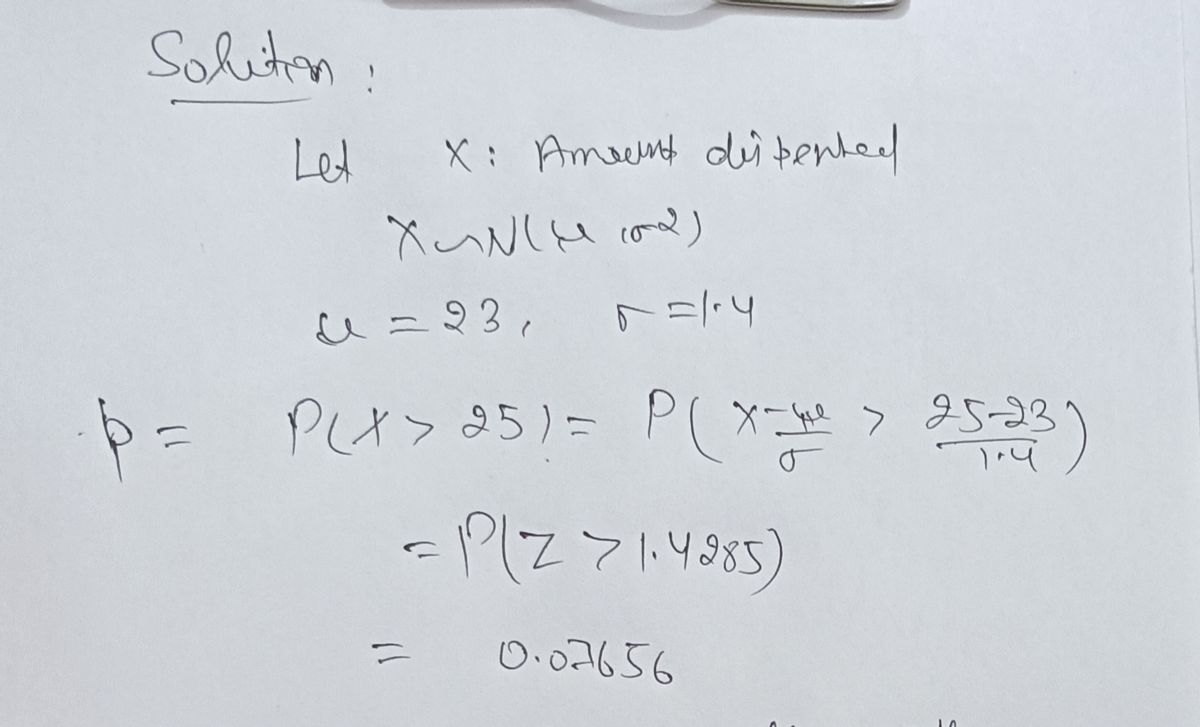 Solution :
Let X : Amount dispensed
X ~ N(μ, σ2)
μ = 23, σ = 1.4
p = P(X > 25) = P( X-μ/σ > 25-23/1.4 )
= P(Z > 1.4285)
= 0.07656